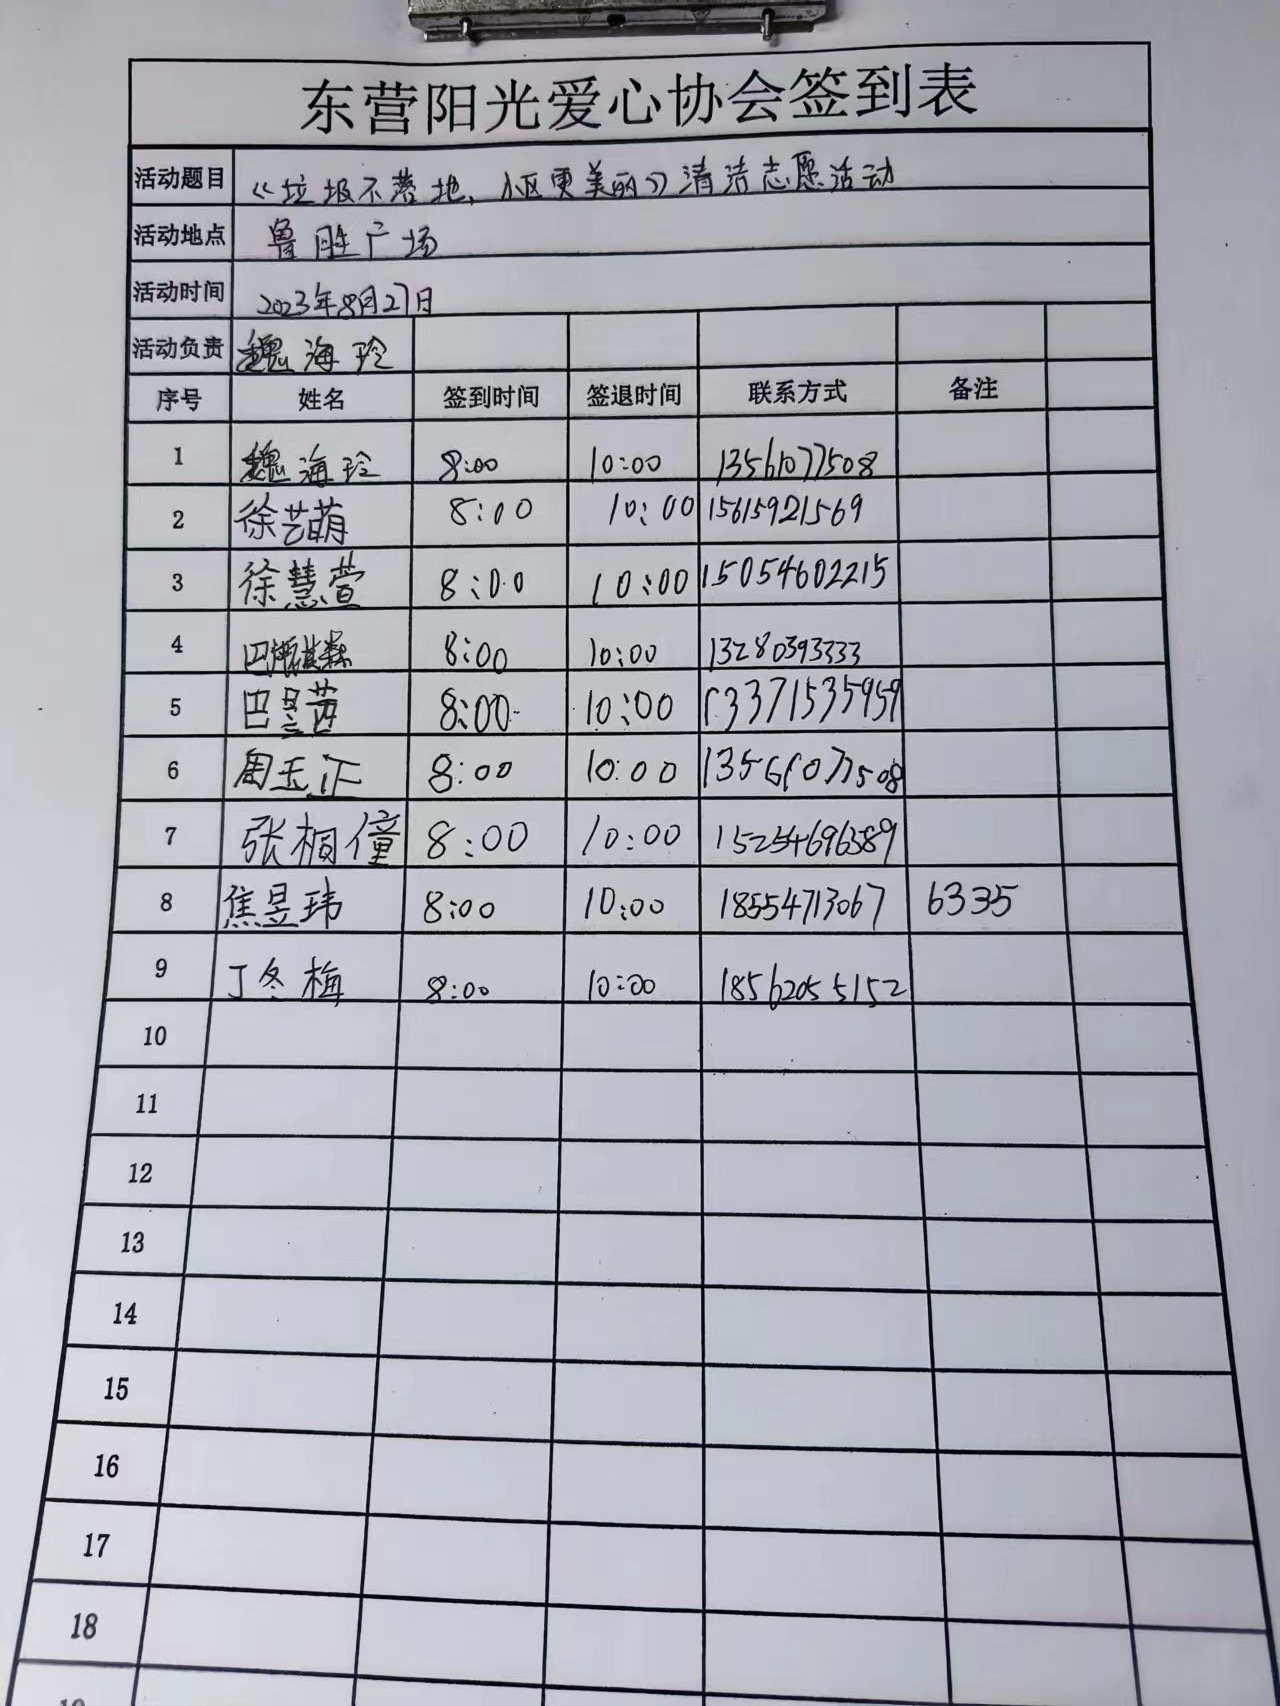 东营阳光爱心协会签到表
活动题目 《垃圾不落地,小区更美丽》清洁志愿活动
活动地点 鲁胜广场
活动时间 2023年8月27日
活动负责 魏海玲
序号 姓名 签到时间 签退时间 联系方式 备注
1 魏海玲 8:00 10:00 13561077508
2 徐艺萌 8:00 10:00 15615921569
3 徐慧萱 8:00 10:00 15054602215
4 巴 8:00 10:00 13280393333
5 巴昙茜 8:00 10:00 13371535959
6 周玉正 8:00 10:00 13561077508
7 张桐僮 8:00 10:00 15254696589
8 焦昱玮 8:00 10:00 18554713067 6335
9 丁冬梅 8:00 10:00 18562055152
10
11
12
13
14
15
16
17
18